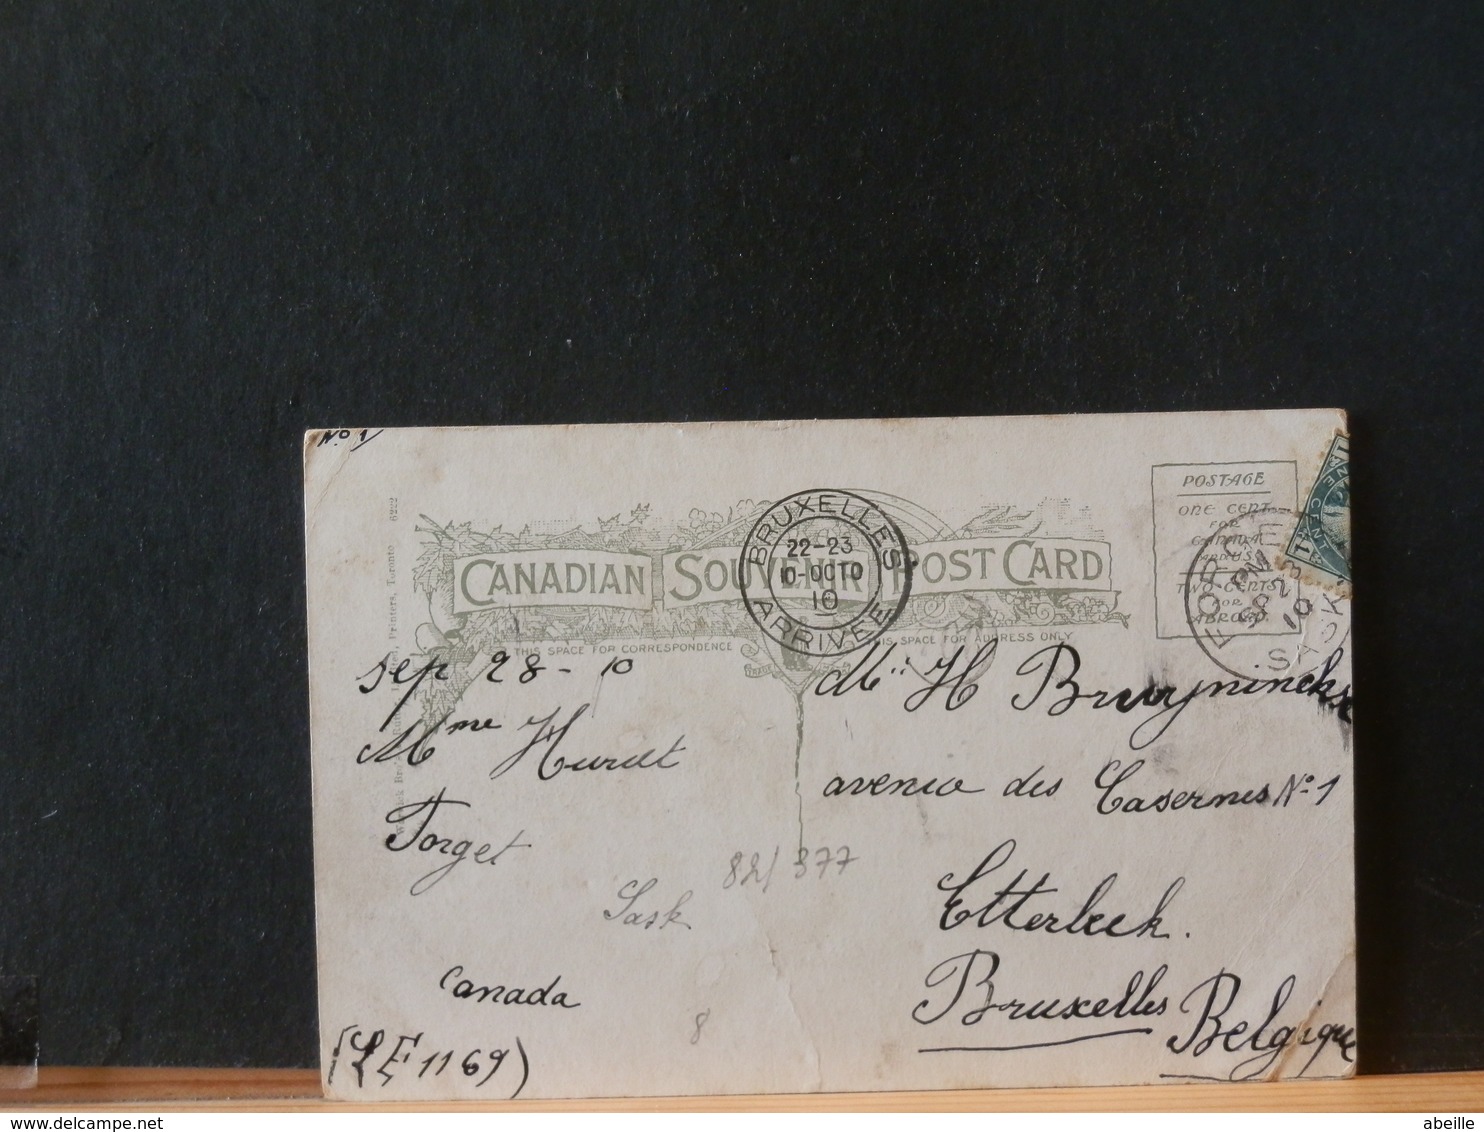 No 1
POSTAGE
ONE CENT
FOR
CANADA
TWO CENTS
FOR
ABROAD.
FORGET
PM
SP 28
10
SASK
BRUXELLES
22-23
10-OCTO
10
ARRIVEE
CANADIAN SOUVENIR POST CARD
THIS SPACE FOR CORRESPONDENCE
THIS SPACE FOR ADDRESS ONLY
Printers, Toronto 6222
sep 28 - 10
Mme Hurdt
Forget
Sask
Canada
(LE 1169)
82/377
8
H Bruyninckx
avenue des Casernes No 1
Etterbeek.
Bruxelles Belgique
abeille